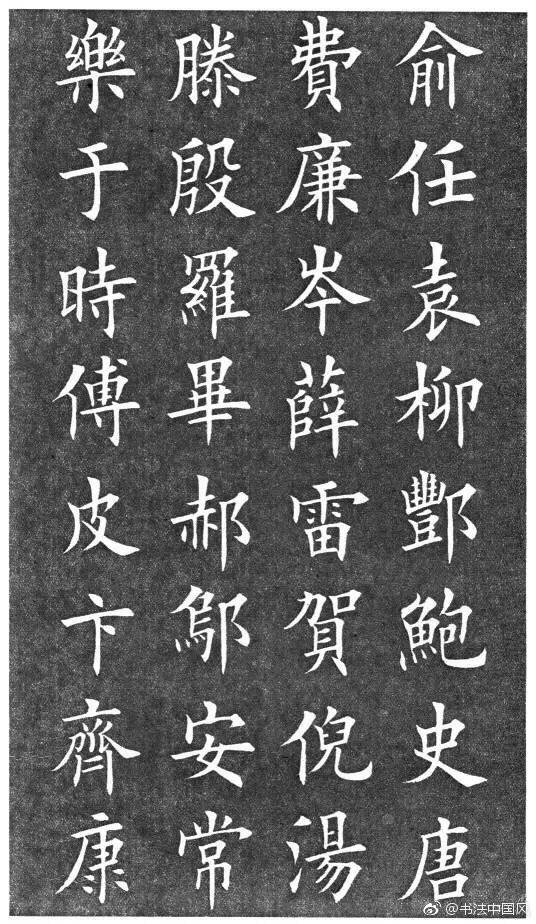 俞任袁柳酆鮑史唐
費廉岑薛雷賀倪湯
滕殷羅畢郝鄔安常
樂于時傅皮卞齊康
@书法中国风